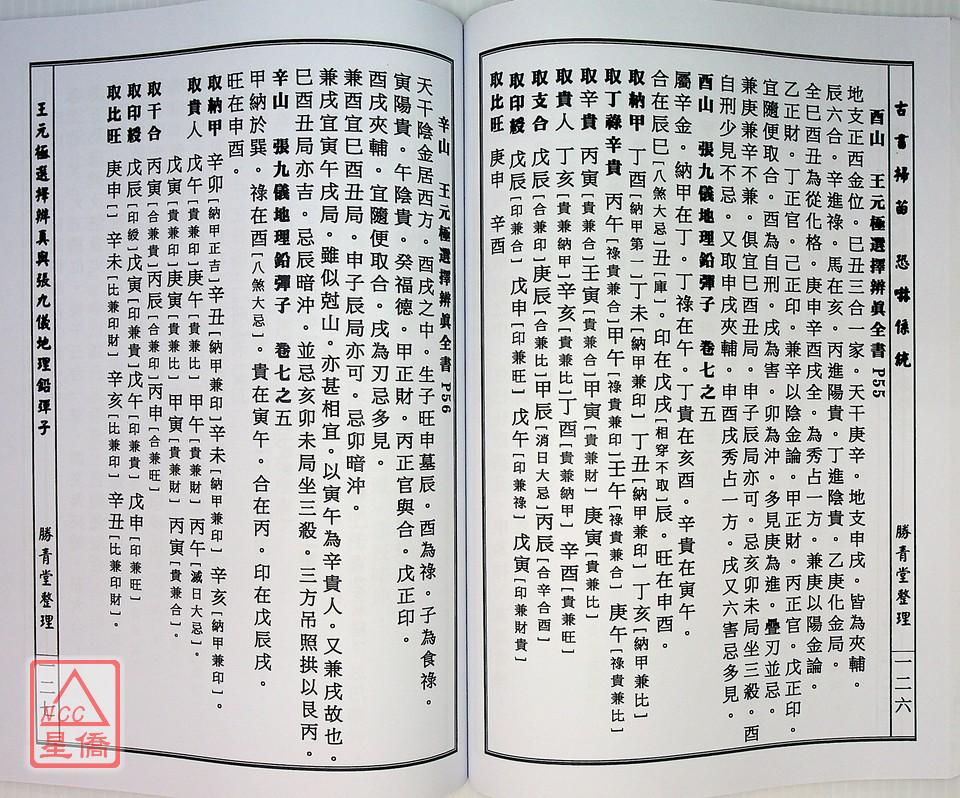 古書掃苗恐嚇係統
勝青堂整理
一二六
酉山　王元極選擇辨真全書 P55
地支正酉金位．巳丑三合一家．天干庚辛．地支申戌．皆為夾輔．
辰六合．辛進祿．馬在亥．丙進陽貴．丁進陰貴．乙庚化金局．
全巳酉丑為從化格．庚申辛酉戌全．為秀占一方．兼庚以陽金論．
乙正財．丁正官．己正印．兼辛以陰金論．甲正財．丙正官．戊正印．
宜隨便取合．酉為自刑．戌為害．卯為沖．多見庚為進．疊刃並忌．
兼庚兼辛不兼．俱宜巳酉丑局．申子辰局亦可．忌亥卯未局坐三殺．酉
自刑少見不忌．又取申戌夾輔．申酉戌秀占一方．戌又六害忌多見．
酉山　張九儀地理鉛彈子　卷七之五
屬辛金．納甲在丁．丁祿在午．丁貴在亥酉．辛貴在寅午．
合在辰巳[八煞大忌]丑[庫]．印在戊戌[相穿不取]辰．旺在申酉．
取納甲　丁酉[納甲第一]丁未[納甲兼印]丁丑[納甲兼印]丁亥[納甲兼比]
取丁祿辛貴　丙午[祿貴兼合]甲午[祿貴兼印]壬午[祿貴兼合]庚午[祿貴兼比]
取辛貴　丙寅[貴兼合]壬寅[貴兼合]甲寅[貴兼財]庚寅[貴兼比]
取貴人　丁亥[貴兼納甲]辛亥[貴兼比]丁酉[貴兼納甲]辛酉[貴兼旺]
取支合　戊辰[合兼印]庚辰[合兼比]甲辰[消日大忌]丙辰[合辛合酉]
取印綬　戊辰[印兼合]戊申[印兼旺]戊午[印兼祿]戊寅[印兼財貴]
取比旺　庚申　辛酉
辛山　王元極選擇辨真全書 P56
天干陰金居西方．酉戌之中．生子旺申墓辰．酉為祿．子為食祿．
寅陽貴．午陰貴．癸福德．甲正財．丙正官與合．戊正印．
酉戌夾輔．宜隨便取合．戌為刃忌多見．
兼酉宜巳酉丑局．申子辰局亦可．忌卯暗沖．
兼戌宜寅午戌局．雖似尅山．亦甚相宜．以寅午為辛貴人．又兼戌故也．
巳酉丑局亦吉．忌辰暗沖．並忌亥卯未局坐三殺．三方吊照拱以艮丙．
辛山　張九儀地理鉛彈子　卷七之五
甲納於巽．祿在酉[八煞大忌]．貴在寅午．合在丙．印在戊辰戌．
旺在申酉．
取納甲　辛卯[納甲正吉]辛丑[納甲兼印]辛未[納甲兼印]辛亥[納甲兼印]．
取貴人　戊午[貴兼印]庚午[貴兼比]甲午[貴兼財]丙午[滅日大忌]．
戊寅[貴兼印]庚寅[貴兼比]甲寅[貴兼財]丙寅[貴兼合]．
取干合　丙寅[合兼貴]丙辰[合兼印]丙申[合兼旺]
取印綬　戊辰[印綬]戊寅[印兼貴]戊午[印兼貴]戊申[印兼旺]
取比旺　庚申]辛未[比兼印財]辛亥[比兼印]辛丑[比兼印財]．
王元極選擇辨真與張九儀地理鉛彈子
勝青堂整理
一二七
NCC
星僑